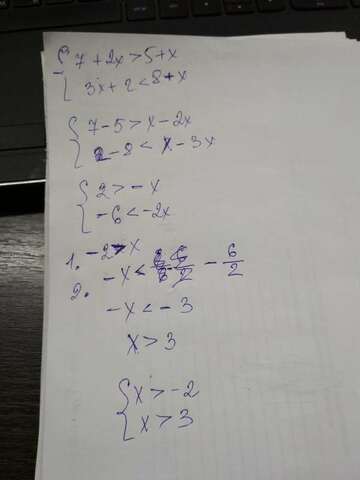 { 7 + 2x > 5 + x
{ 3x + 2 < 8 + x
{ 7 - 5 > x - 2x
{ 2 - 8 < x - 3x
{ 2 > - x
{ -6 < -2x
1. -2 > x
2. -x < - 6/2
-x < - 3
x > 3
{ x > -2
{ x > 3